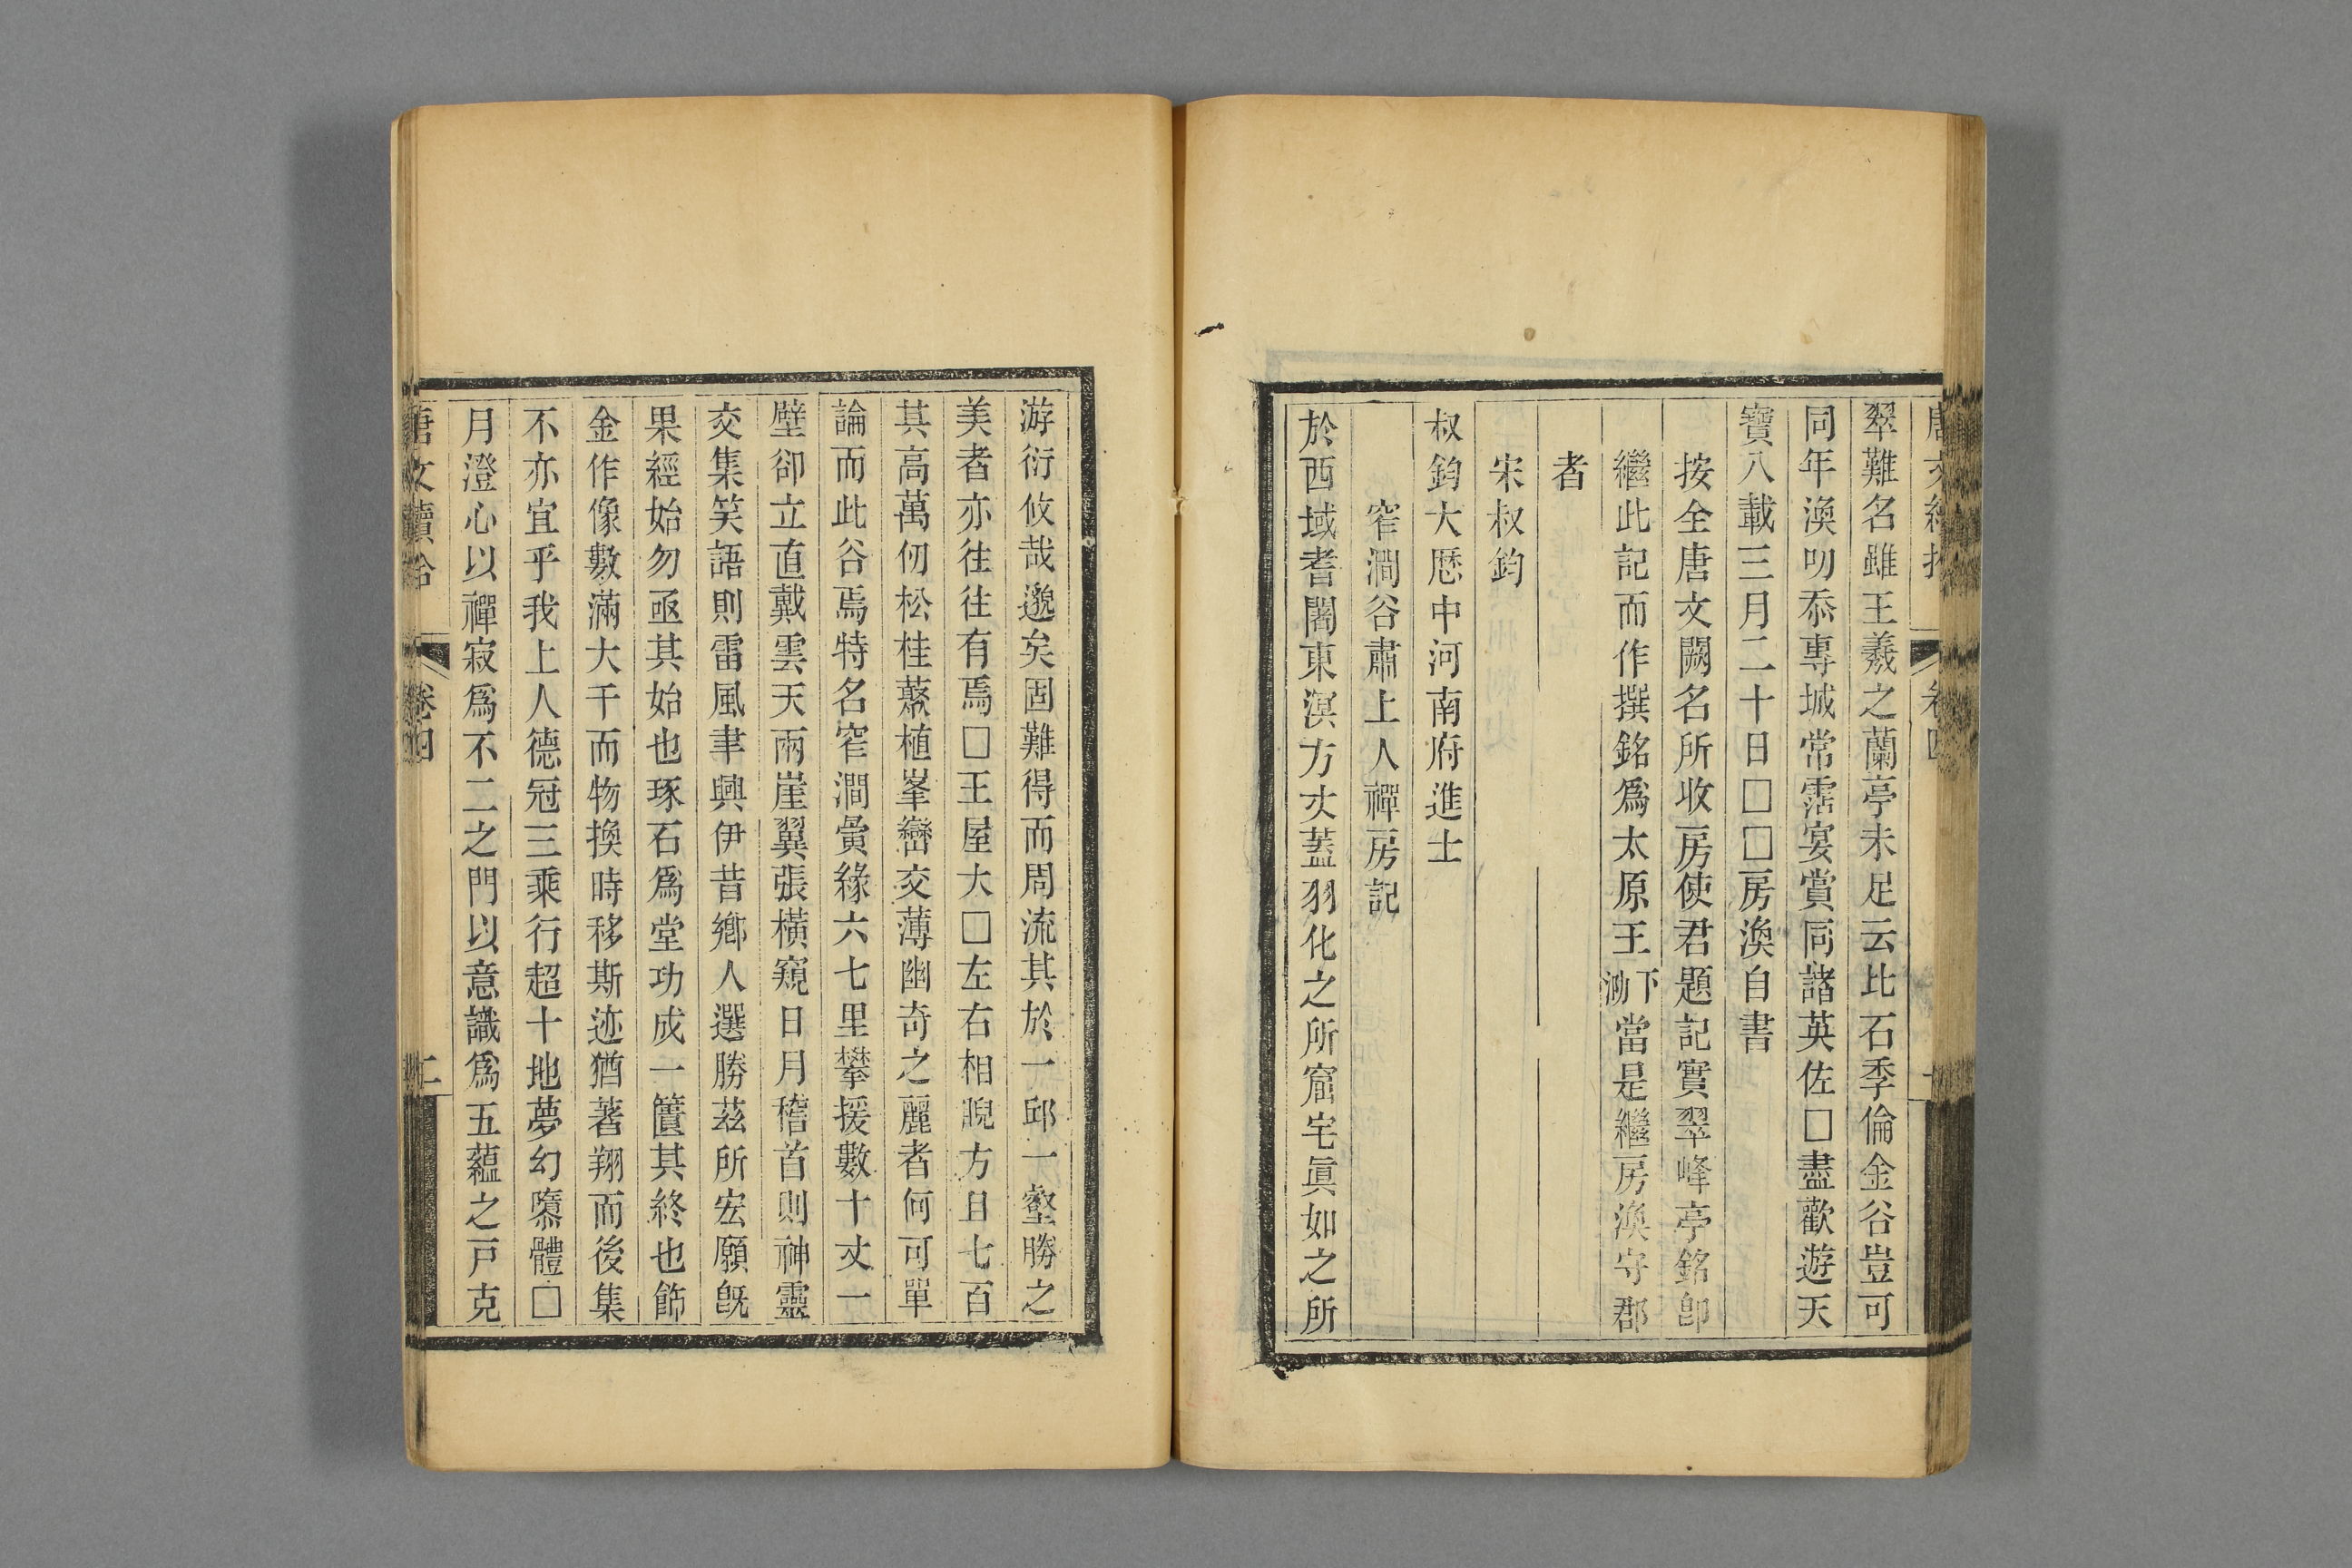 翠難名雖王羲之蘭亭未足云比石季倫金谷豈可
同年渙叨忝專城常霑宴賞同諸英佐□盡歡遊天
寶八載三月二十日□□房渙自書
按全唐文闕名所收房使君題記實翠峰亭銘卽
繼此記而作撰銘爲太原王下泐當是繼房渙守郡
者
宋叔鈞
叔鈞大厯中河南府進士
窄澗谷肅上人禪房記
於西域耆闍東溟方丈蓋羽化之所窟宅眞如之所
游衍攸哉邈矣固難得而周流其於一邱一壑勝之
美者亦往往有焉□王屋大□左右相睨方且七百
其高萬仞松桂藂植峯巒交薄幽奇之麗者何可單
論而此谷焉特名窄澗夤緣六七里攀援數十丈一
壁卻立直戴雲天兩崖翼張橫窺日月稽首則神靈
交集笑語則雷風聿興伊昔鄉人選勝茲所宏願旣
果經始勿亟其始也琢石爲堂功成一簣其終也飾
金作像數滿大千而物換時移斯迹猶著翔而後集
不亦宜乎我上人德冠三乘行超十地夢幻隳體□
月澄心以禪寂爲不二之門以意識爲五蘊之戸克
唐文續拾
卷四